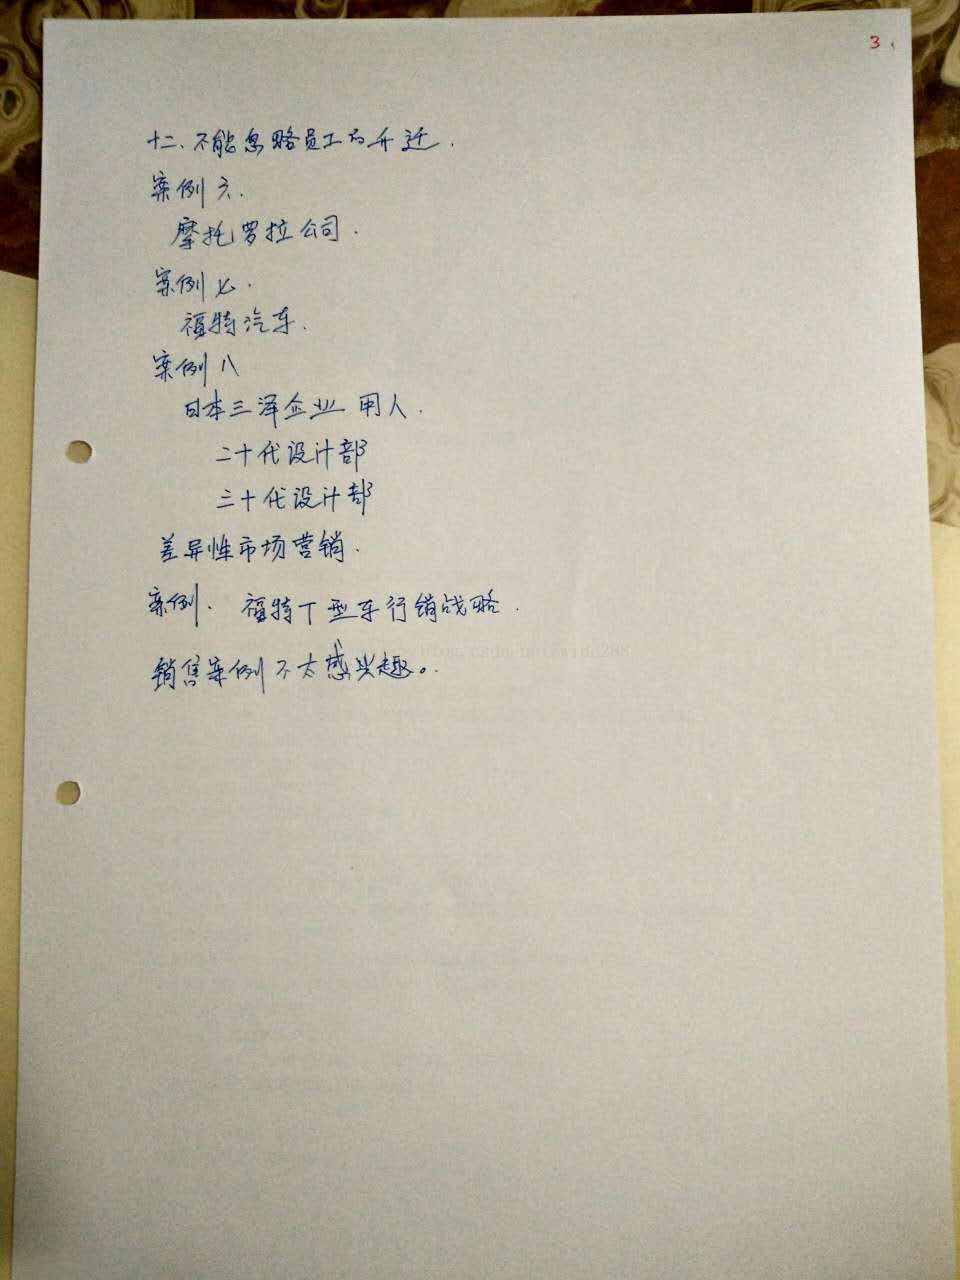 3.
十二、不能忽略员工的升迁.
案例六.
摩托罗拉公司.
案例七.
福特汽车.
案例八
日本三泽企业 用人.
二十代设计部
三十代设计部
差异性市场营销.
案例. 福特T型车行销战略.
销售案例不太感兴趣。